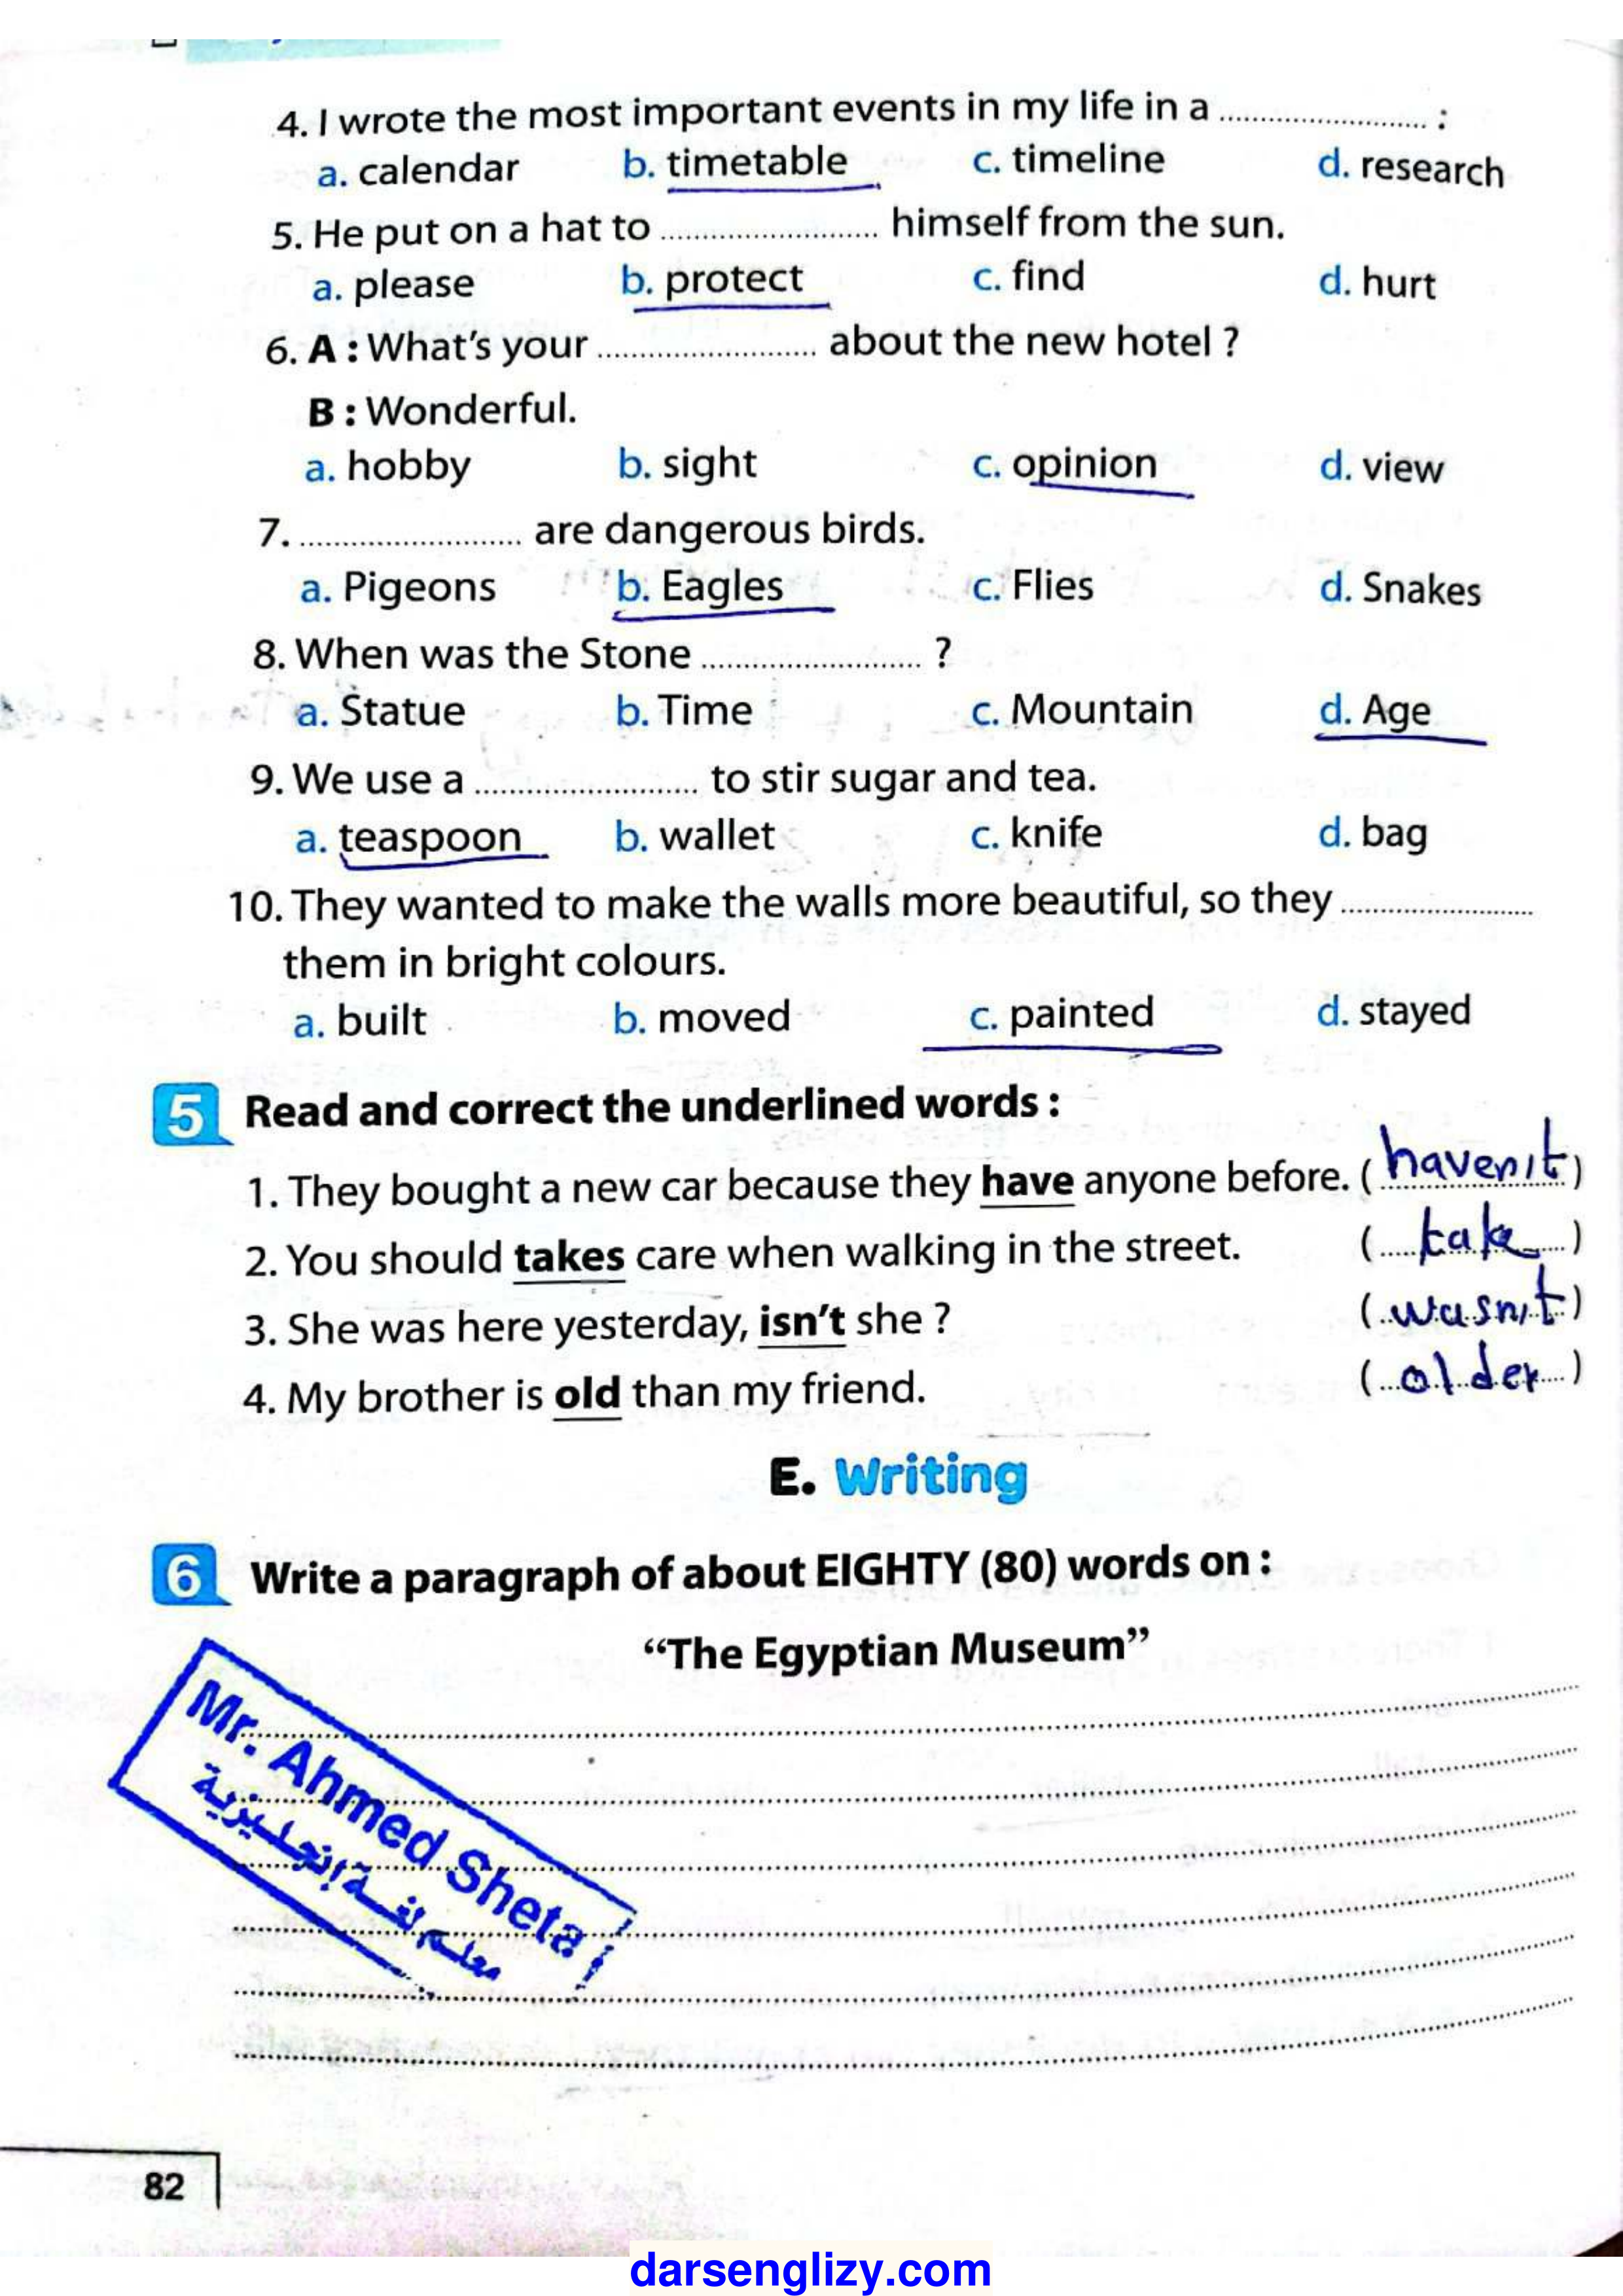 4. I wrote the most important events in my life in a ........................ :
a. calendar b. timetable c. timeline d. research
5. He put on a hat to ........................ himself from the sun.
a. please b. protect c. find d. hurt
6. A : What's your ........................ about the new hotel ?
B : Wonderful.
a. hobby b. sight c. opinion d. view
7. ........................ are dangerous birds.
a. Pigeons b. Eagles c. Flies d. Snakes
8. When was the Stone ........................ ?
a. Statue b. Time c. Mountain d. Age
9. We use a ........................ to stir sugar and tea.
a. teaspoon b. wallet c. knife d. bag
10. They wanted to make the walls more beautiful, so they ........................
them in bright colours.
a. built b. moved c. painted d. stayed
5 Read and correct the underlined words :
1. They bought a new car because they have anyone before. ( haven't )
2. You should takes care when walking in the street. ( take )
3. She was here yesterday, isn't she ? ( wasn't )
4. My brother is old than my friend. ( older )
E. Writing
6 Write a paragraph of about EIGHTY (80) words on :
“The Egyptian Museum”
Mr. Ahmed Sheta
معلم لغة إنجليزية
82
darsenglizy.com